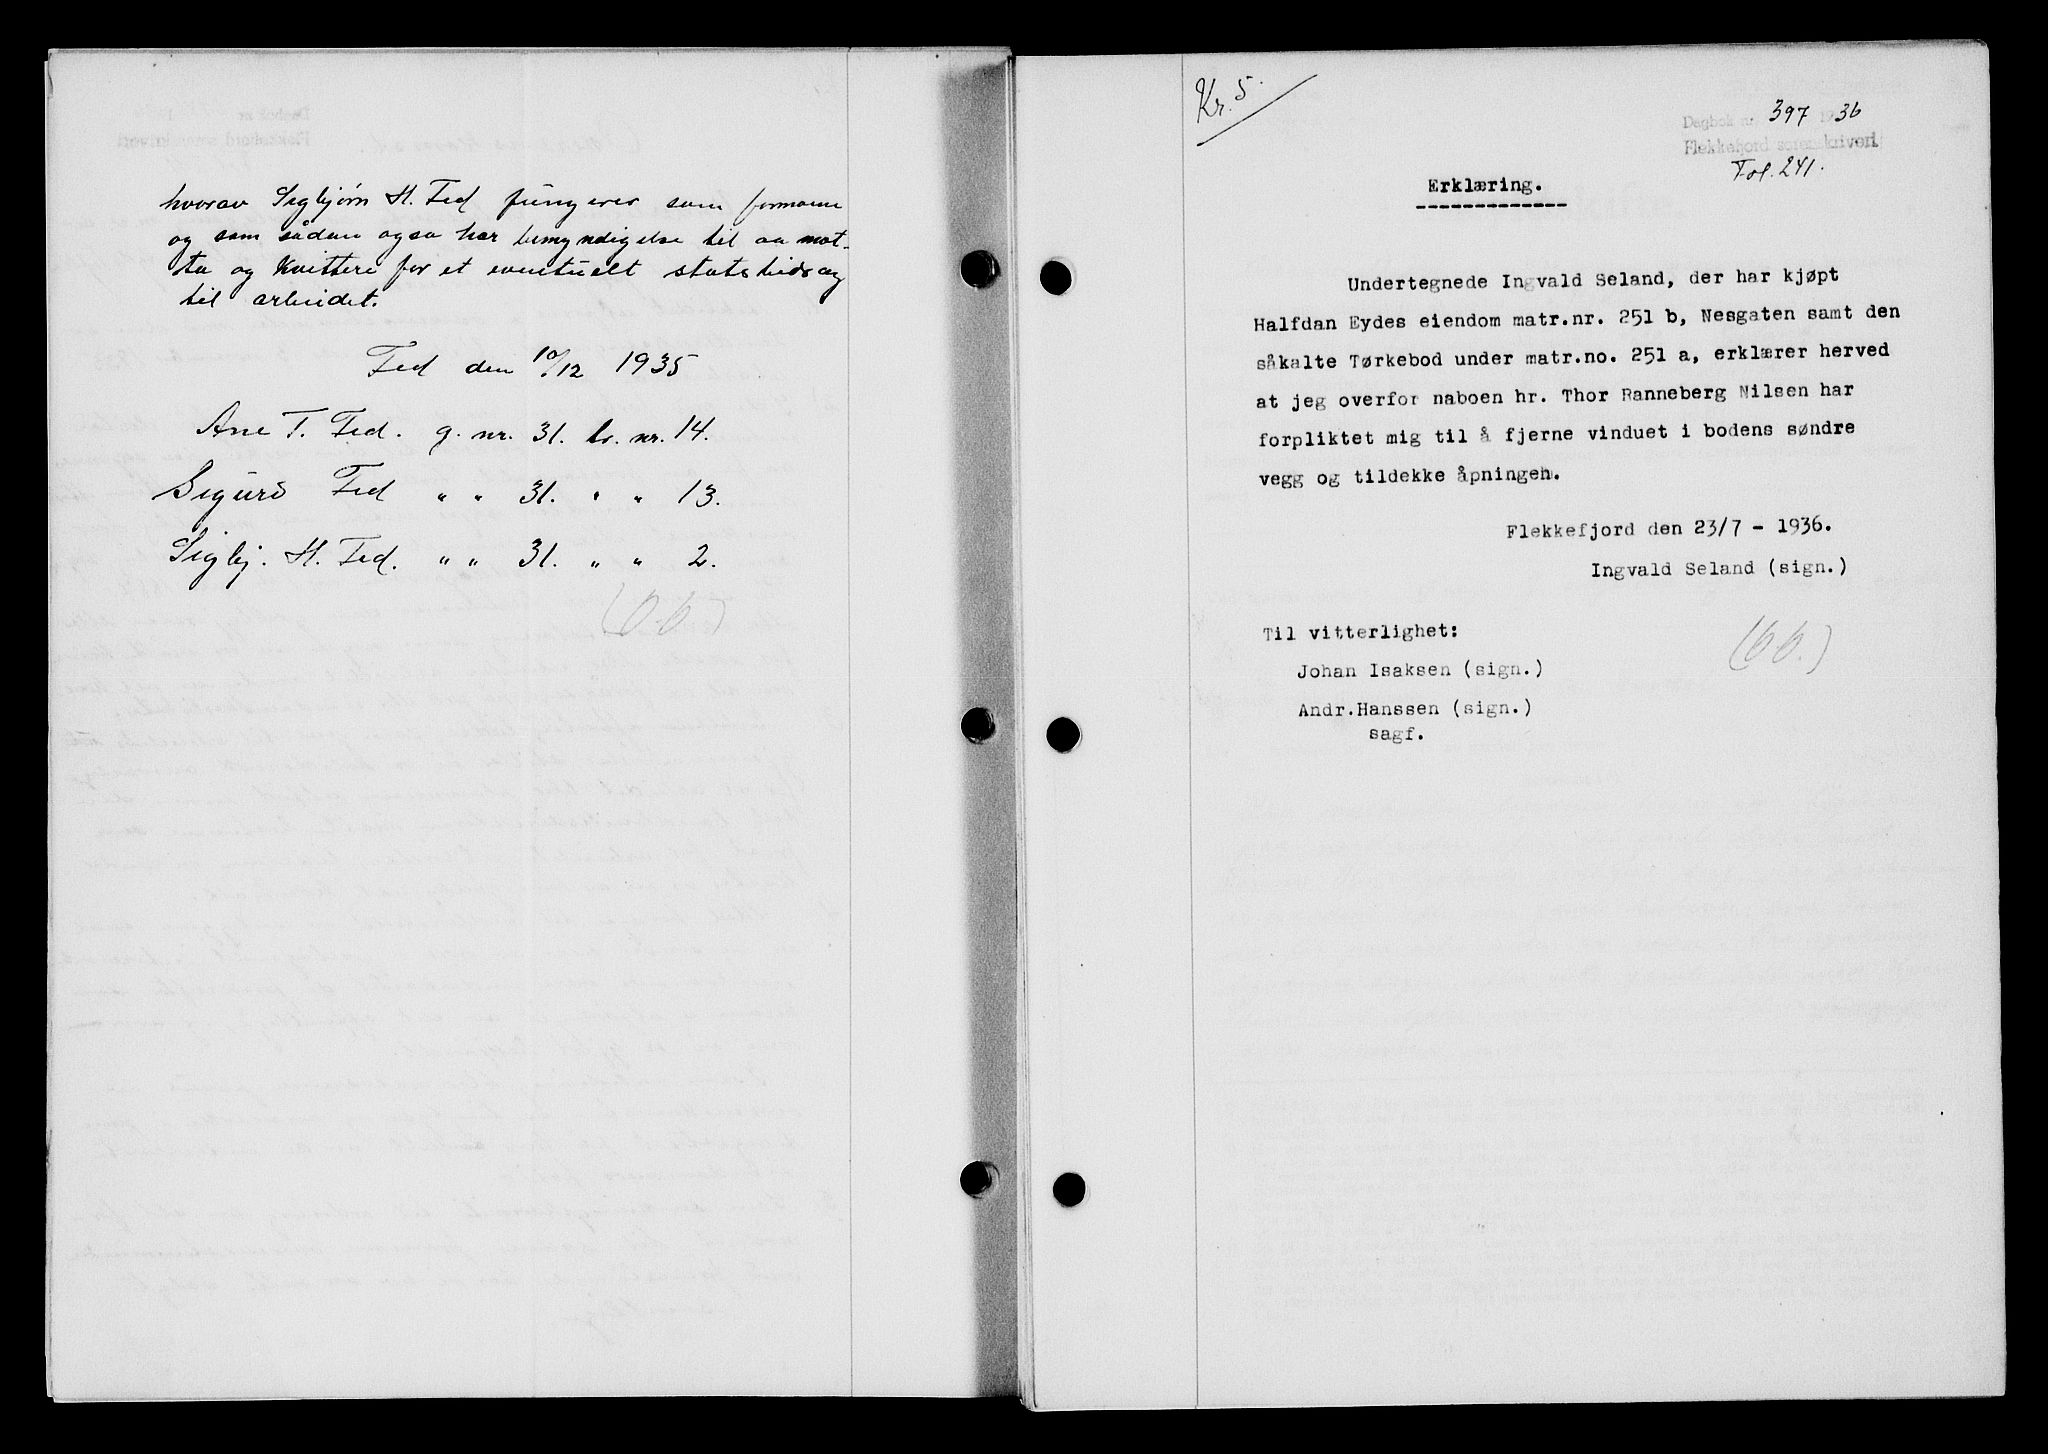 hvorav Sigbjørn H. Fed fungerer som formann
og som sådan også har bemyndigelse til aa mot-
ta og kvittere for et eventuelt statsbidrag
til arbeidet.
Fed den 10/12 1935
Ane T. Fed. g. nr. 31. br. nr. 14.
Sigurd Fed " " 31. " " 13.
Sigbj. H. Fed. " " 31. " " 2.
Kr. 5.
Dagbok nr. 397 1936
Flekkefjord sorenskriveri
Fol. 241.
Erklæring.
Undertegnede Ingvald Seland, der har kjøpt
Halfdan Eydes eiendom matr.nr. 251 b, Nesgaten samt den
såkalte Tørkebod under matr.no. 251 a, erklærer herved
at jeg overfor naboen hr. Thor Ranneberg Nilsen har
forpliktet mig til å fjerne vinduet i bodens søndre
vegg og tildekke åpningen.
Flekkefjord den 23/7 - 1936.
Ingvald Seland (sign.)
Til vitterlighet:
Johan Isaksen (sign.)
Andr.Hanssen (sign.)
sagf.